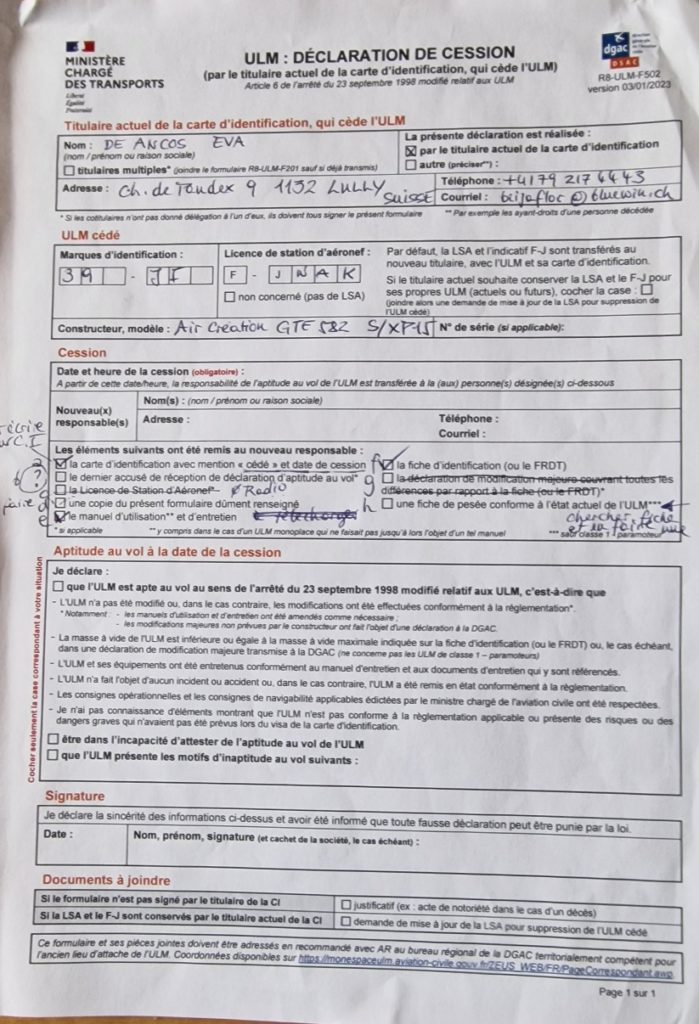 MINISTÈRE
CHARGÉ
DES TRANSPORTS
Liberté
Égalité
Fraternité
ULM : DÉCLARATION DE CESSION
(par le titulaire actuel de la carte d'identification, qui cède l'ULM)
Article 6 de l'arrêté du 23 septembre 1998 modifié relatif aux ULM
dgac
DSAC
R8-ULM-F502
version 03/01/2023
Titulaire actuel de la carte d'identification, qui cède l'ULM
Nom : DE ANCOS EVA
(nom / prénom ou raison sociale)
titulaires multiples* (joindre le formulaire R8-ULM-F201 sauf si déjà transmis)
La présente déclaration est réalisée :
par le titulaire actuel de la carte d'identification
autre (préciser**) :
Adresse : Ch. de Tondex 9 1132 LULLY SUISSE
Téléphone : +4179 217 44 43
Courriel : beijafloc@bluewin.ch
* Si les cotitulaires n'ont pas donné délégation à l'un d'eux, ils doivent tous signer le présent formulaire
** Par exemple les ayant-droits d'une personne décédée
ULM cédé
Marques d'identification :
39 - JI
Licence de station d'aéronef :
F - JNAK
non concerné (pas de LSA)
Par défaut, la LSA et l'indicatif F-J sont transférés au
nouveau titulaire, avec l'ULM et sa carte d'identification.
Si le titulaire actuel souhaite conserver la LSA et le F-J pour
ses propres ULM (actuels ou futurs), cocher la case :
(joindre alors une demande de mise à jour de la LSA pour suppression de
l'ULM cédé)
Constructeur, modèle : Air Création GTE 582 S/XP15
N° de série (si applicable):
Cession
Date et heure de la cession (obligatoire) :
A partir de cette date/heure, la responsabilité de l'aptitude au vol de l'ULM est transférée à la (aux) personne(s) désignée(s) ci-dessous
Nouveau(x)
responsable(s)
Nom(s) : (nom / prénom ou raison sociale)
Adresse :
Téléphone :
Courriel :
Les éléments suivants ont été remis au nouveau responsable :
la carte d'identification avec mention « cédé » et date de cession
le dernier accusé de réception de déclaration d'aptitude au vol*
la Licence de Station d'Aéronef* Radio
une copie du présent formulaire dûment renseigné
le manuel d'utilisation** et d'entretien
f la fiche d'identification (ou le FRDT)
g la déclaration de modification majeure couvrant toutes les
différences par rapport à la fiche (ou le FRDT)*
h une fiche de pesée conforme à l'état actuel de l'ULM***
chercher fiche
et en faire une
* si applicable
** y compris dans le cas d'un ULM monoplace qui ne faisait pas jusqu'à lors l'objet d'un tel manuel
*** sauf classe 1 - paramoteur
Cocher seulement la case correspondant à votre situation
Aptitude au vol à la date de la cession
Je déclare :
que l'ULM est apte au vol au sens de l'arrêté du 23 septembre 1998 modifié relatif aux ULM, c'est-à-dire que
- L'ULM n'a pas été modifié ou, dans le cas contraire, les modifications ont été effectuées conformément à la règlementation*.
* Notamment : - les manuels d'utilisation et d'entretien ont été amendés comme nécessaire ;
- les modifications majeures non prévues par le constructeur ont fait l'objet d'une déclaration à la DGAC.
- La masse à vide de l'ULM est inférieure ou égale à la masse à vide maximale indiquée sur la fiche d'identification (ou le FRDT) ou, le cas échéant,
dans une déclaration de modification majeure transmise à la DGAC (ne concerne pas les ULM de classe 1 – paramoteurs)
- L'ULM et ses équipements ont été entretenus conformément au manuel d'entretien et aux documents d'entretien qui y sont référencés.
- L'ULM n'a fait l'objet d'aucun incident ou accident ou, dans le cas contraire, l'ULM a été remis en état conformément à la règlementation.
- Les consignes opérationnelles et les consignes de navigabilité applicables édictées par le ministre chargé de l'aviation civile ont été respectées.
- Je n'ai pas connaissance d'éléments montrant que l'ULM n'est pas conforme à la règlementation applicable ou présente des risques ou des
dangers graves qui n'avaient pas été prévus lors du visa de la carte d'identification.
être dans l'incapacité d'attester de l'aptitude au vol de l'ULM
que l'ULM présente les motifs d'inaptitude au vol suivants :
Signature
Je déclare la sincérité des informations ci-dessus et avoir été informé que toute fausse déclaration peut être punie par la loi.
Date :
Nom, prénom, signature (et cachet de la société, le cas échéant) :
Documents à joindre
Si le formulaire n'est pas signé par le titulaire de la CI
justificatif (ex : acte de notoriété dans le cas d'un décès)
Si la LSA et le F-J sont conservés par le titulaire actuel de la CI
demande de mise à jour de la LSA pour suppression de l'ULM cédé
Ce formulaire et ses pièces jointes doivent être adressés en recommandé avec AR au bureau régional de la DGAC territorialement compétent pour
l'ancien lieu d'attache de l'ULM. Coordonnées disponibles sur https://monespaceulm.aviation-civile.gouv.fr/ZEUS_WEB/FR/PageCorrespondant.awp
Page 1 sur 1